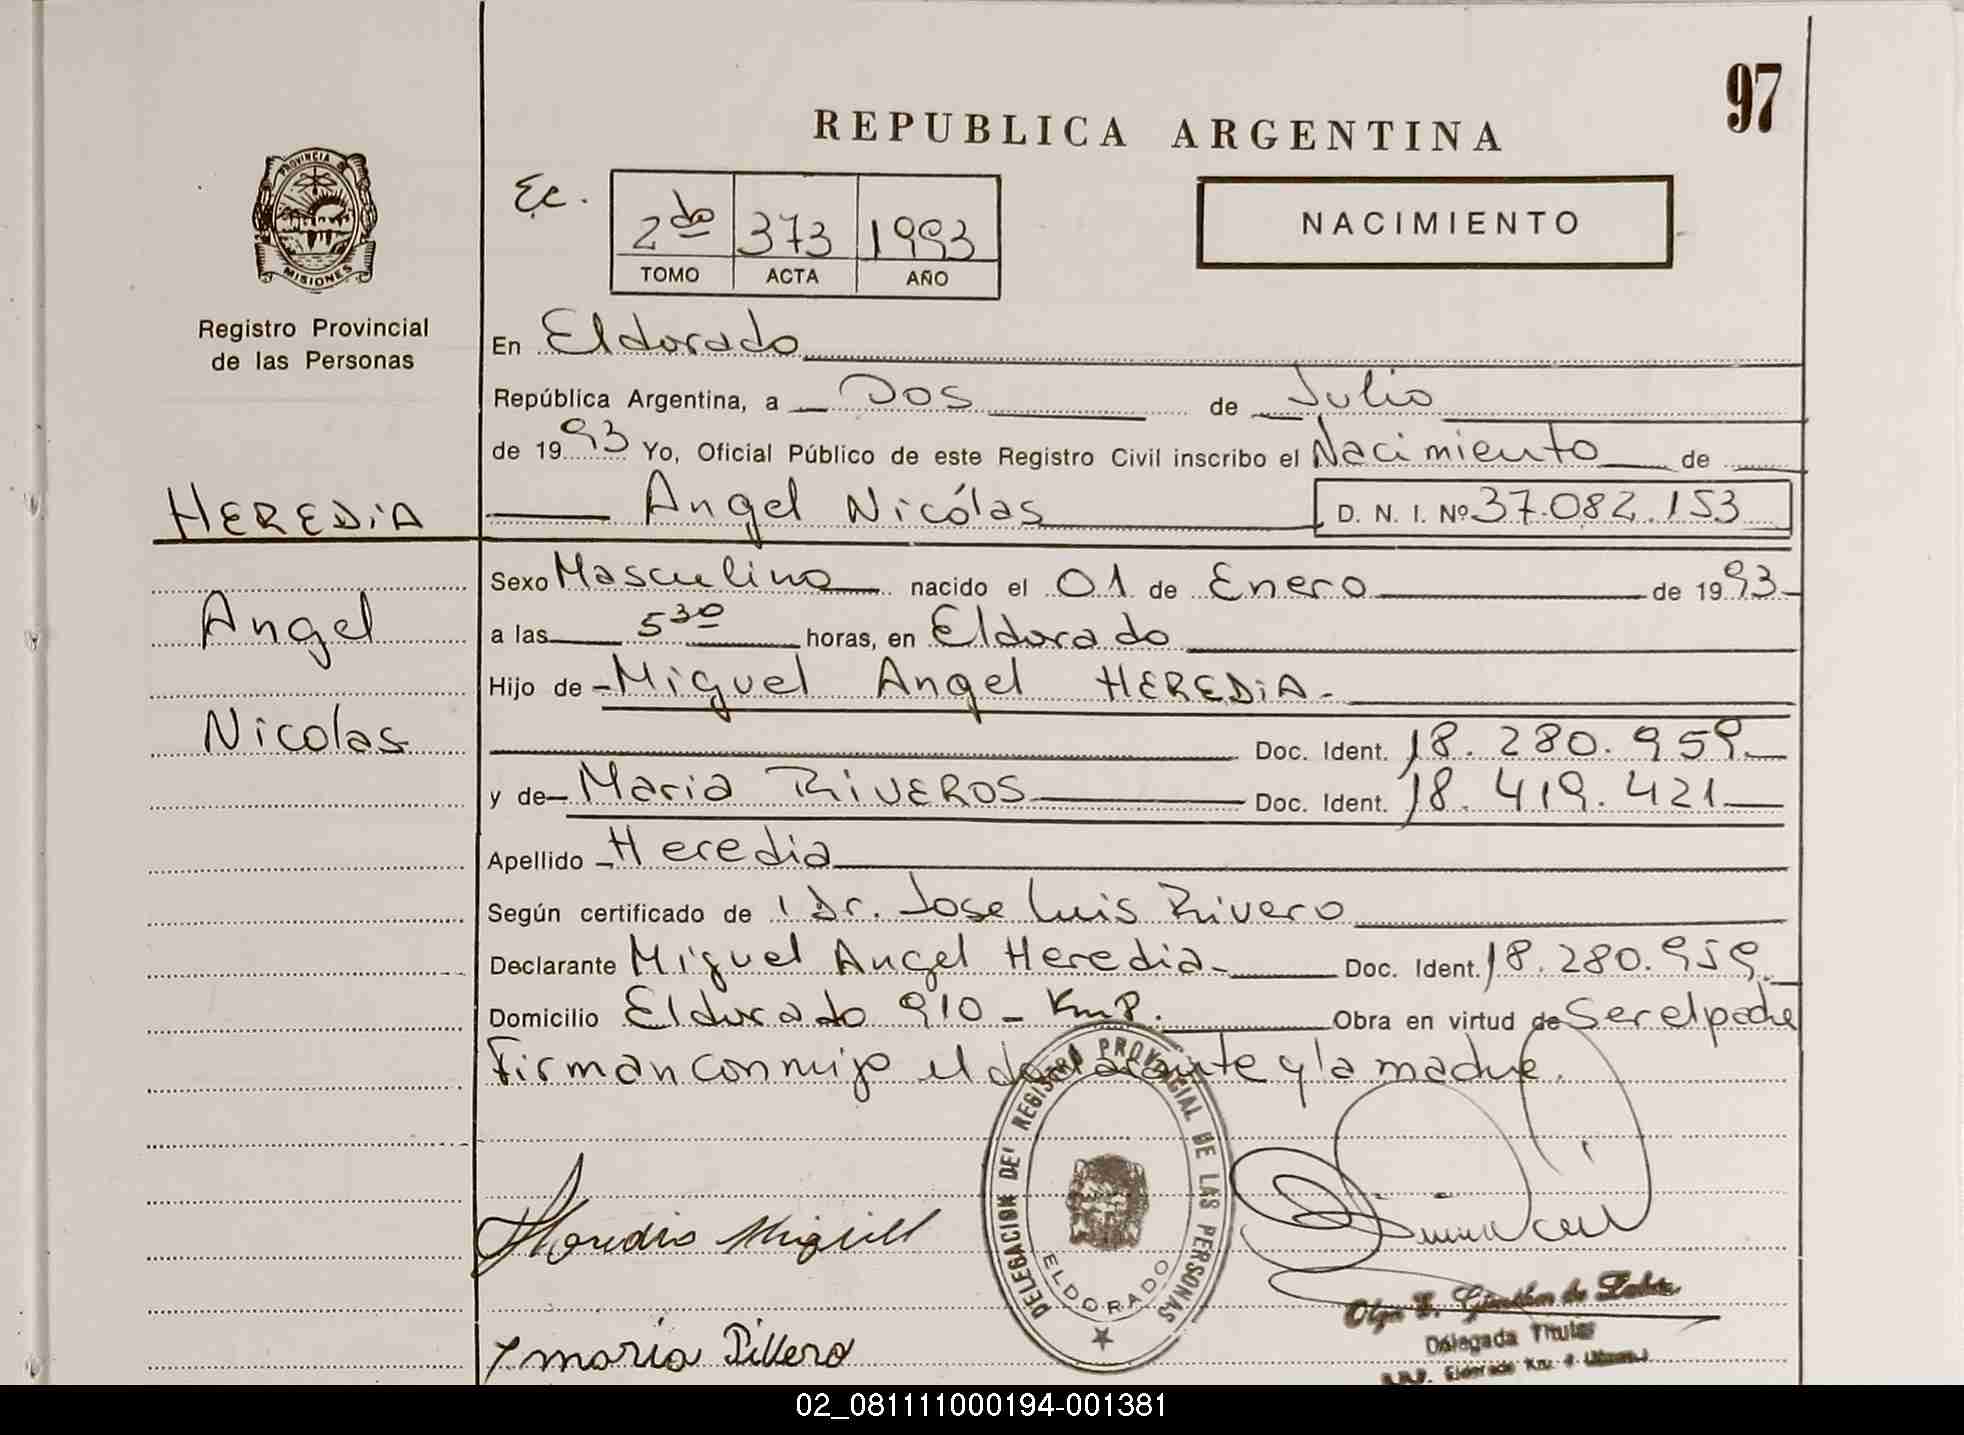 97
REPUBLICA ARGENTINA
PROVINCIA DE
MISIONES
Registro Provincial
de las Personas
Ec.
2do 373 1993
TOMO ACTA AÑO
NACIMIENTO
En Eldorado
República Argentina, a Dos de Julio
de 1993 Yo, Oficial Público de este Registro Civil inscribo el Nacimiento de
HEREDIA
Angel Nicólas D. N. I. Nº 37.082.153
Sexo Masculino nacido el 01 de Enero de 1993
Angel
a las 5 30 horas, en Eldorado
Hijo de Miguel Angel HEREDIA
Nicolas
Doc. Ident. 18.280.959
y de Maria RIVEROS Doc. Ident. 18.419.421
Apellido Heredia
Según certificado de Dr. Jose Luis Rivero
Declarante Miguel Angel Heredia Doc. Ident. 18.280.959
Domicilio Eldorado 910 - Km 8. Obra en virtud de Ser el padre
Firman conmigo el declarante y la madre.
DELEGACION DEL REGISTRO PROVINCIAL DE LAS PERSONAS
ELDORADO
Heredia Miguel
Olga
Delegada Titular
Eldorado Km.
Maria
02_081111000194-001381